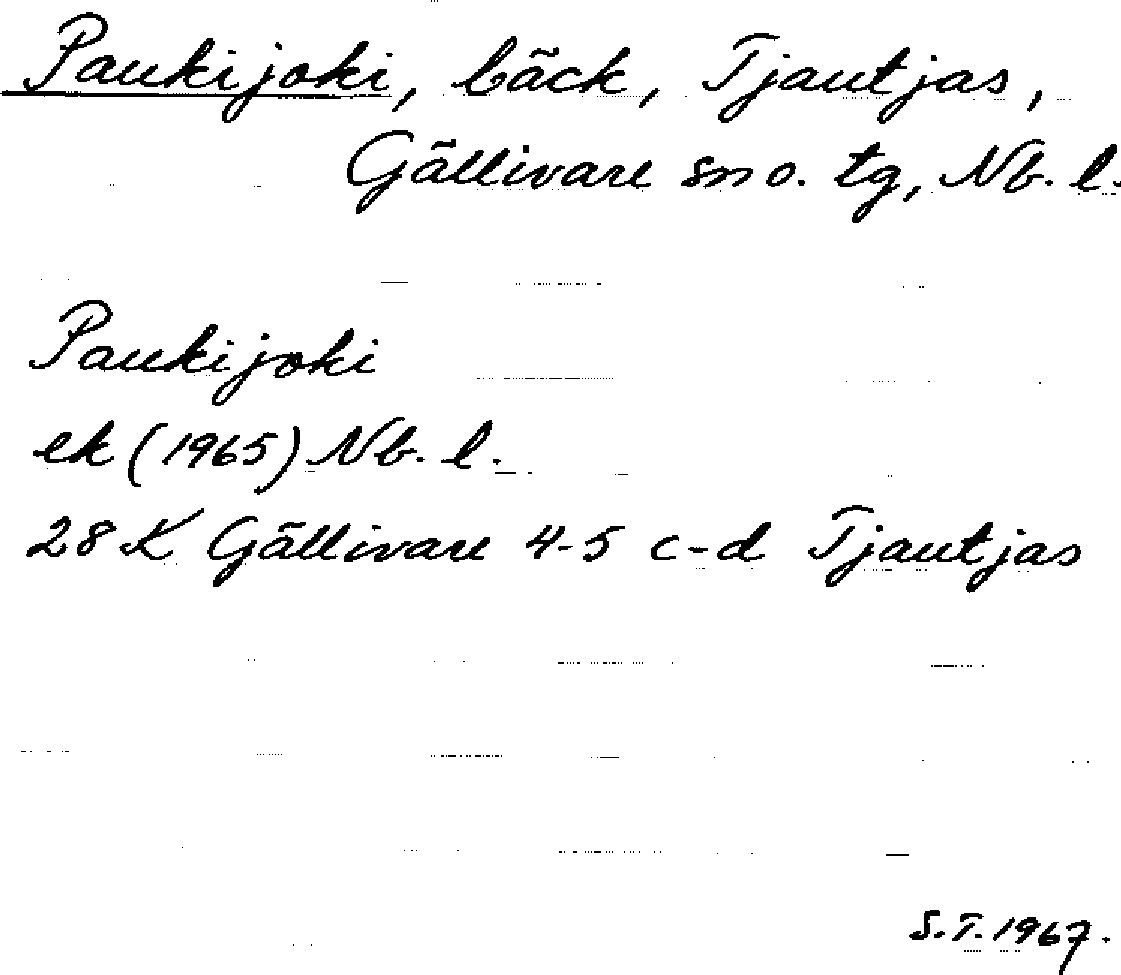 Paukijoki, bäck, Tjautjas,
Gällivare sn o. tg, Nb. l.
Paukijoki
ek (1965) Nb. l.
28 K Gällivare 4-5 c-d Tjautjas
S.T. 1967.